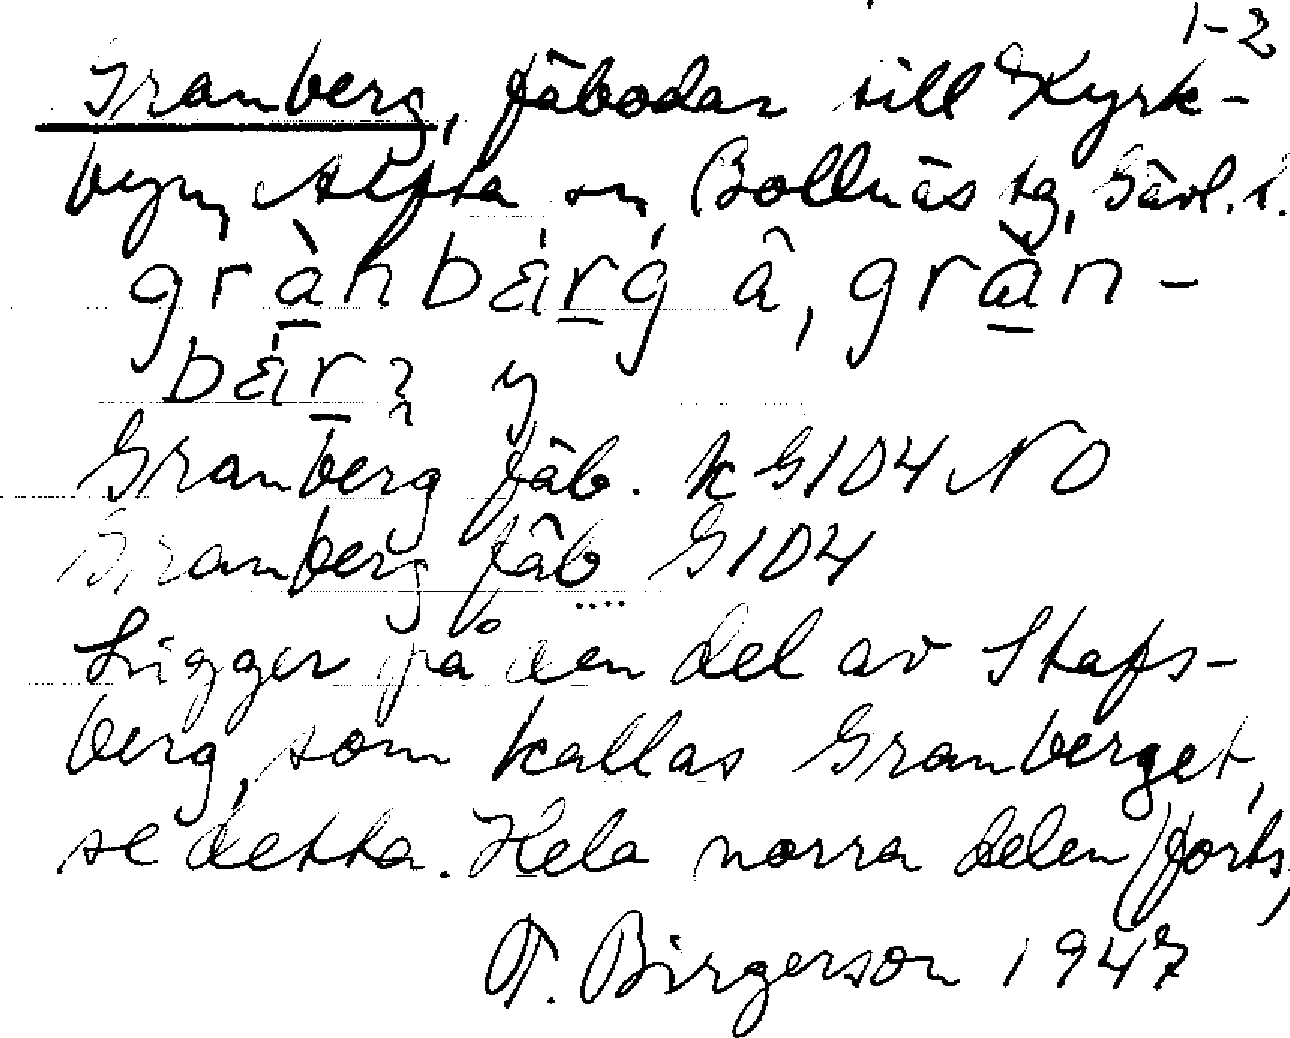 1-2
Granberg, fäbodar till Kyrk-
byn, Alfta sn, Bollnäs tg, Gävl. l.
grànbérg â, gràn-
y
Granberg fäb. k G104 NO
Granberg fäb G104
Ligger på den del av Stafs-
berg, som kallas Granberget,
se detta. Hela norra delen (forts,
T. Birgerson 1947